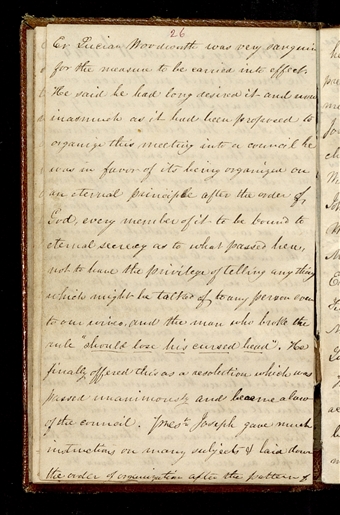 26
Er. Lucian Woodworth was very sanguin
for the measure to be carried into effect.
He said he had long desired it and now
inasmuch as it had been proposed to
organize this meeting into a council he
was in favor of its being organized on
an eternal principle after the order of
God, every member of it to be bound to
eternal secrecy as to what passed here,
not to have the privilege of telling any thing
which might be talked of to any person even
to our wives, and the man who broke the
rule "should lose his cursed head". He
finally offered this as a resolution which was
passed unanimously and became a law
of the council. Prest. Joseph gave much
instruction on many subjects & laid down
the order of organization after the pattern of